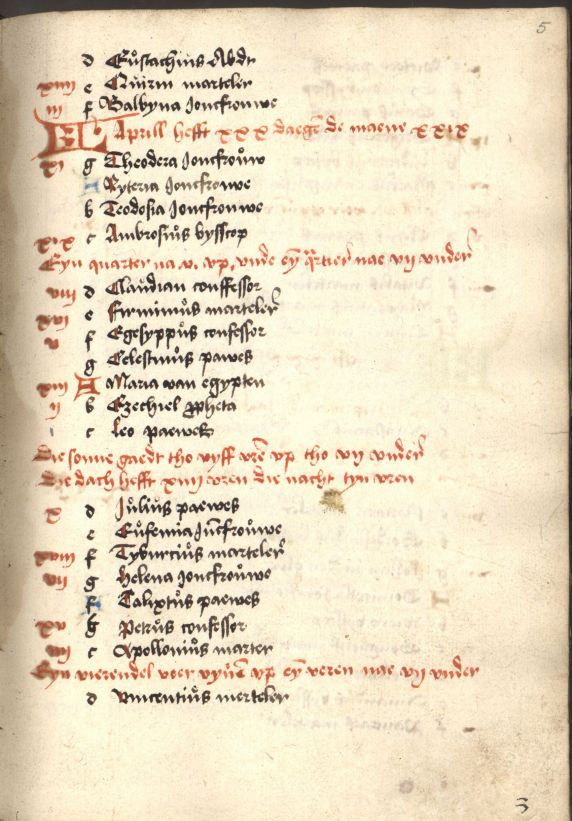 5
d Eustachius Abdt
xiiii e Quirin marteler
iii f Balbyna Joncfrouwe
KL Aprill hefft xxx daegे de maene xxix
xi g Theodera Joncfrouw
A Ryteria Joncfrouwe
b Teodosia Joncfrouwe
xix c Ambrosius bysscop
Eyn quarter na .v. vp, vnde eyn qrtier nae vii vnder
viii d Claudian conffessor
xvi e Firminus marteler
v f Egesyppus confessor
g Celestinus pawes
xiii A Maria van egypten
ii b Ezechiel ppheta
c Leo paewes
Die sonne gaedt tho vyff vre vp tho vii vnder
Die dach hefft xiiii vren die nacht tyn vren
x d Julius paewes
e Eufemia Jucfrouwe
xviii f Tyburcius marteler
vii g Helena Joncfrouwe
A Calixtus paewes
xv b Petrus confessor
iiii c Apollonius marter
Eyn vierendel voer vyue vp ey veren nae vii vnder
d vincentius merteler
3